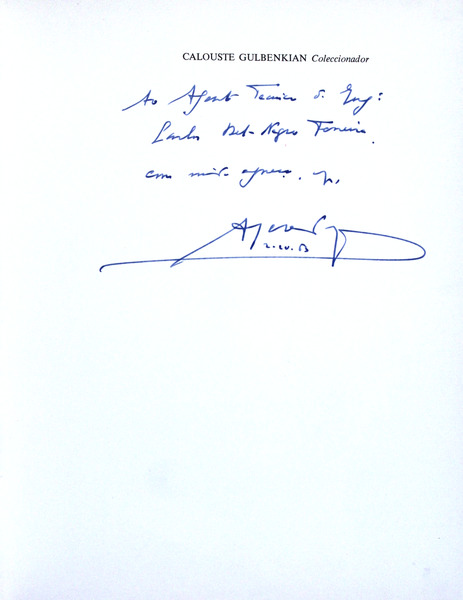 CALOUSTE GULBENKIAN Coleccionador
Ao Agente Técnico de Eng:
Carlos Del-Negro Ferreira
com muito apreço,